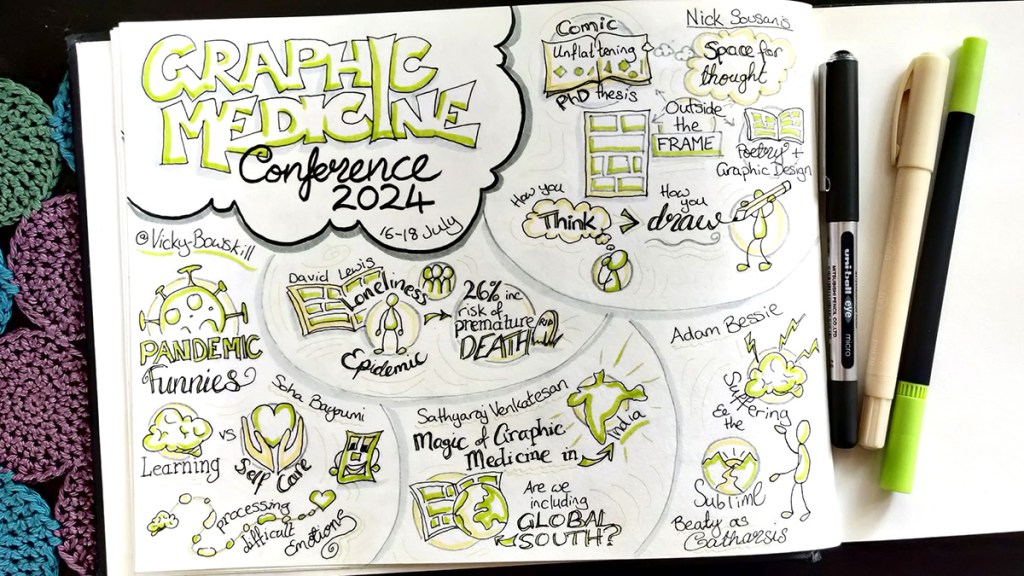 GRAPHIC
MEDICINE
Conference
2024
16-18 July
Nick Sousanis
Comic
Unflattening
PhD thesis
Space for
thought
Outside
the
FRAME
Poetry +
Graphic Design
How you
Think
How
you
draw
@Vicky-Bowskill
PANDEMIC
funnies
David Lewis
Loneliness
Epidemic
26% inc
risk of
premature
DEATH
RIP
Soha Bayoumi
Learning
vs
Self Care
processing
difficult
Emotions
Sathyaraj Venkatesan
Magic of Graphic
Medicine in
India
Are we
including
GLOBAL
SOUTH?
Adam Bessie
Suffering
& the
Sublime
Beaty as
Catharsis
uniball eye
micro